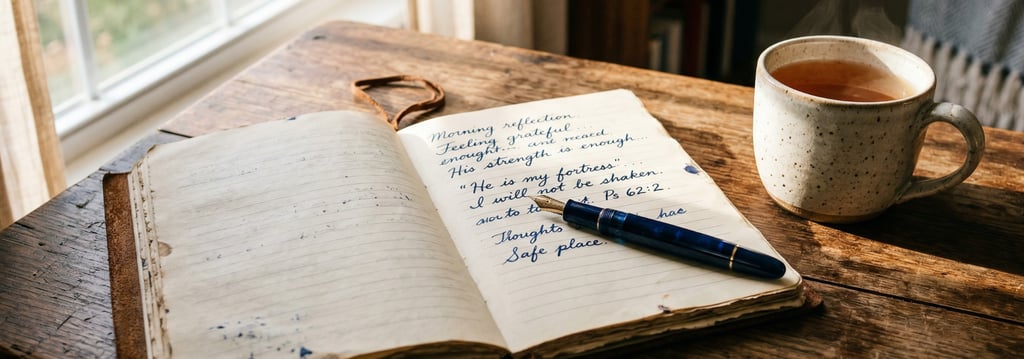 Morning reflection...
Feeling grateful...
enought... and
His strength is enough...
"He is my fortress"...
I will not be shaken.
to Ps 62:2.
Thoughts
Safe place